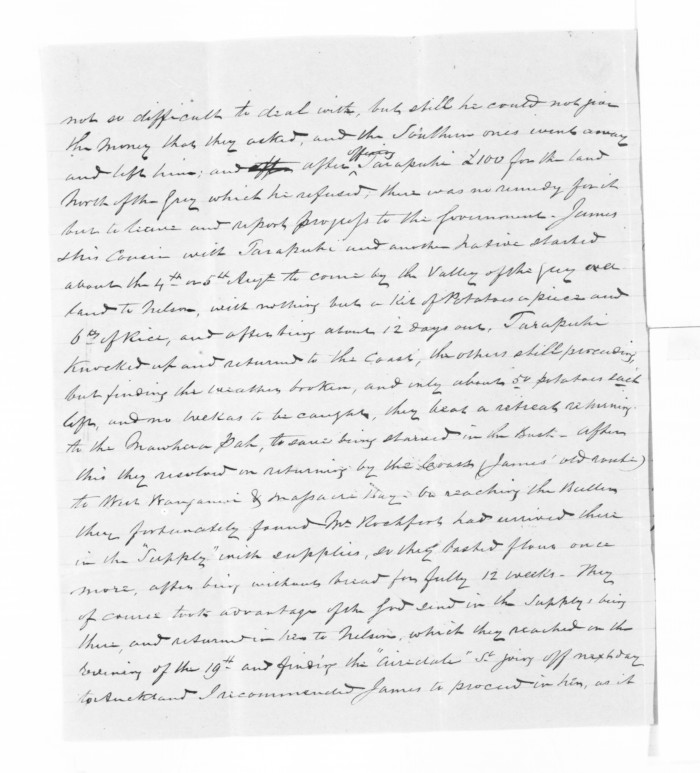 not so difficult to deal with, but still he could not give
the money that they asked, and the Southern ones went away
and left him; and after offering Tarapuhi £100 for the land
North of the Grey which he refused, there was no remedy for it
but to leave and report progress to the Government. James
& his Cousin with Tarapuhi and another Native started
about the 4th or 5th Augt to come by the Valley of the Grey over
land to Nelson, with nothing but a Kit of Potatoes a piece and
6 lbs of Rice, and after being about 12 days out, Tarapuhi
Knocked up and returned to the Coast, the others still proceeding
but finding the weather broken, and only about 50 potatoes each
left, and no wekas to be caught, they beat a retreat returning
to the Mawhera Pah, to save being starved in the Bush - After
this they resolved on returning by the Coast (James' old route)
to West Wanganui & Massacre Bay - on reaching the Buller
they fortunately found Mr Rochfort had arrived there
in the "Supply" with supplies, so they tasted flour once
more, after being without bread for fully 12 weeks - They
of course took advantage of the God send in the Supply's being
there, and returned in her to Nelson, which they reached on the
Evening of the 19th and finding the "Airedale" St going off next day
to Auckland I recommended James to proceed in her, as it